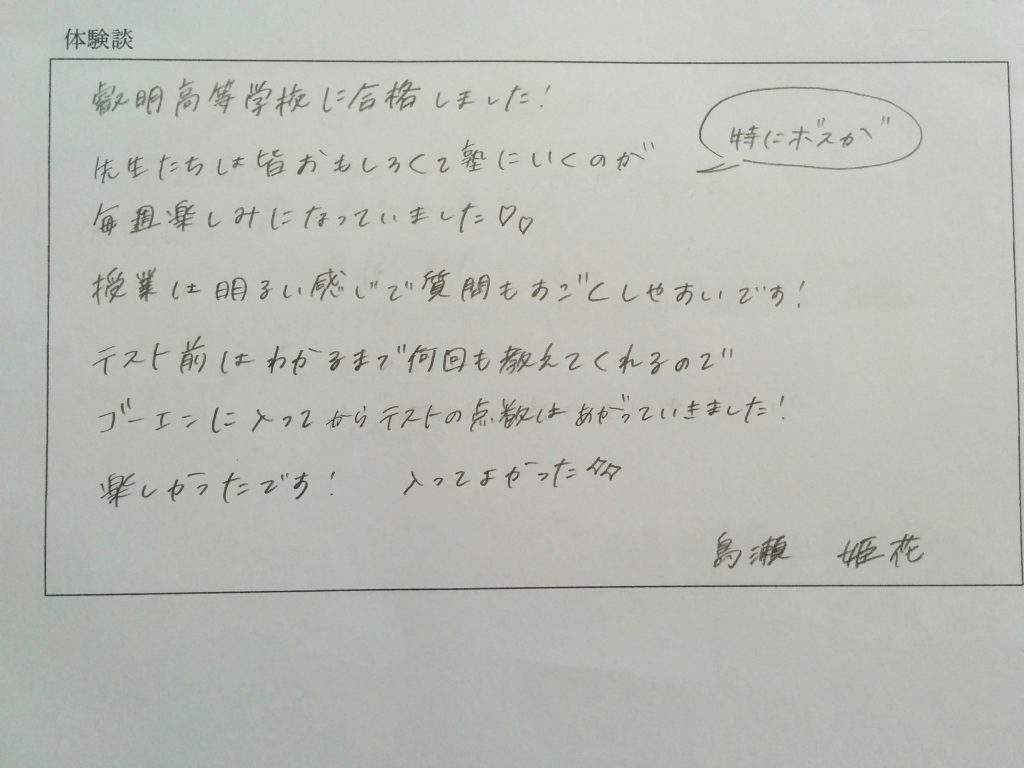 体験談
叡明高等学校に合格しました!
先生たちは皆おもしろくて塾にいくのが
特にボスが
毎週楽しみになっていました♡♡
授業は明るい感じで質問もすごくしやすいです!
テスト前はわかるまで何回も教えてくれるので
ゴーエンに入ってからテストの点数はあがっていきました!
楽しかったです! 入ってよかった
島瀬 姫花